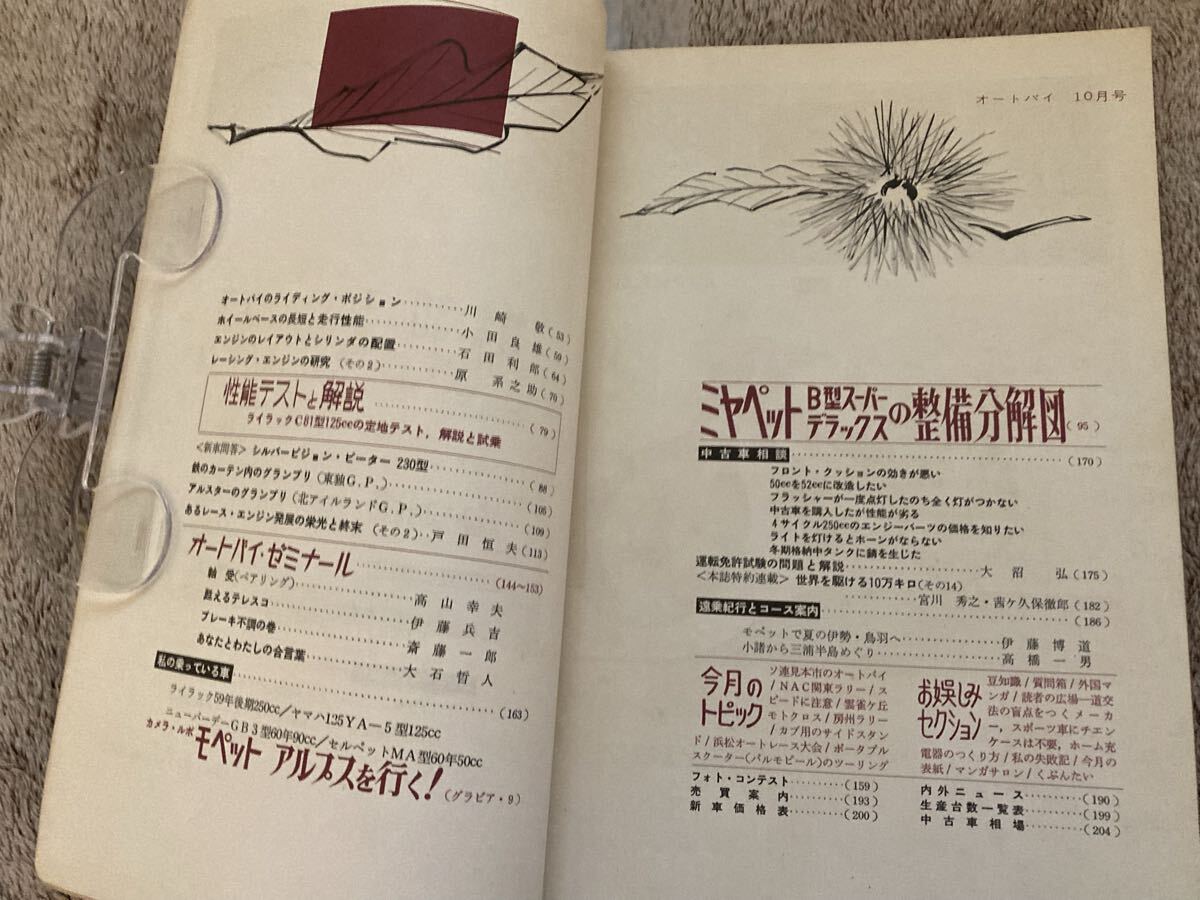 オートバイのライディング・ポジション··········川崎 敬(53)
ホイールベースの長短と走行性能··············小田良雄(59)
エンジンのレイアウトとシリンダの配置··········石田利郎(64)
レーシング・エンジンの研究(その2)··········原 系之助(70)
性能テストと解説··············(79)
ライラックC81型125ccの定地テスト，解説と試乗
<新車問答>シルバーピジョン・ピーター 230型··············(88)
鉄のカーテン内のグランプリ(東独G.P,)··············(105)
アルスターのグランプリ(北アイルランドG.P,)··············(109)
あるレース・エンジン発展の栄光と終末(その2)··戸田恒夫(113)
オートバイ・ゼミナール··············(144〜153)
軸受(ベアリング)··············高山幸夫
甦えるテレスコ··············伊藤兵吉
ブレーキ不調の巻··············斎藤一郎
あなたとわたしの合言葉··············大石哲人
私の乗っている車··············(163)
ライラック59年後期250cc/ヤマハ125YA—5型125cc
ニューバーデーGB3型60年90cc/セルペットMA型60年50cc
カメラ・ルポ モペット アルプスを行く!(グラビア・9)
オートバイ 10月号
ミヤペットB型スーパーデラックスの整備分解図(95)
中古車相談··············(170)
フロント・クッションの効きが悪い
50ccを52ccに改造したい
フラッシャーが一度点灯したのち全く灯がつかない
中古車を購入したが性能が劣る
4サイクル250ccのエンジーパーツの価格を知りたい
ライトを灯けるとホーンがならない
冬期格納中タンクに錆を生じた
運転免許試験の問題と解説··············大沼 弘(175)
<本誌特約連載>世界を駆ける10万キロ(その14)
··········宮川 秀之・茜ケ久保徹郎(182)
遠乗紀行とコース案内··············(186)
モペットで夏の伊勢・鳥羽へ··············伊藤博道
小諸から三浦半島めぐり··············高橋一男
今月のトピック
ソ連見本市のオートバイ
/NAC関東ラリー/ス
ピードに注意/雲雀ケ丘
モトクロス/房州ラリー
/カブ用のサイドスタン
ド/浜松オートレース大会/ポータブル
スクーター(パルモビール)のツーリング
お娯しみセクション
豆知識/質問箱/外国マ
ンガ/読者の広場―道交
法の盲点をつくメーカ
ー，スポーツ車にチエン
ケースは不要，ホーム充
電器のつくり方/私の失敗記/今月の
表紙/マンガサロン/くぶんたい
フォト・コンテスト··········(159)
売買案内··········(193)
新車価格表··········(200)
内外ニュース··········(190)
生産台数一覧表··········(199)
中古車相場··········(204)